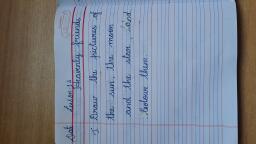 Heavenly friends
I Draw the pictures of
the sun, the moon
and the star, and
colour them.